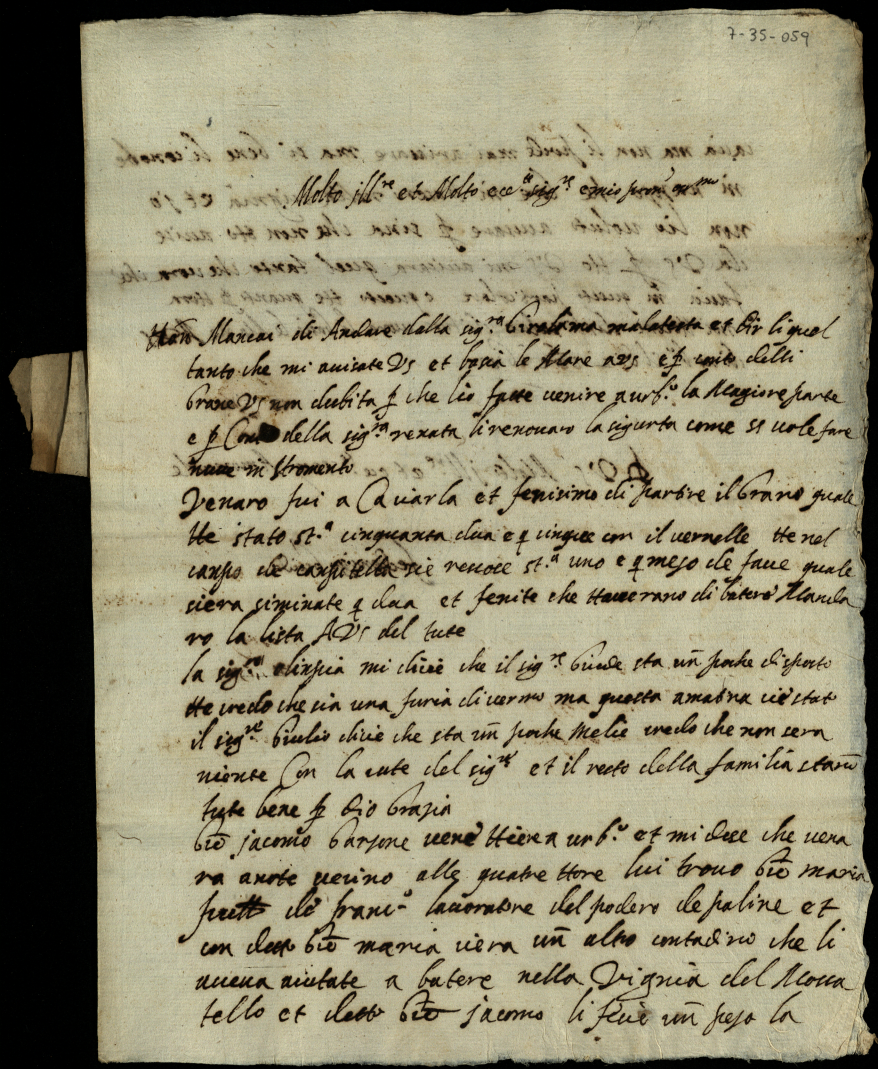 7-35-059
Molto jll.re et Molto ecc.te sig.re e mio
Mancai di Andare dalla sig.ra Girolima malatesta et dir li quel
tanto che mi auisate VS et basia le Mane a VS e p conto delli
Grane VS non dubita p che lio fatte venire a urb.o la Magiore parte
e p Conto della sig.ra renata li renouaro la sigurta come si vole fare
nuue in stromento
Venaro fui a Cauiarla et fenisimo di partire il Grano quale
He stato st.a cinquanta dua e q cinque con il vernelle He nel
campo de sie recoce st.a uno e q mezo de faue quale
ciera siminate q dua et fenite che Hauerano di batere Manda
ro la lista A VS del tute
la sig.ra olinpia mi dice che il sig.re Guide sta un poche disposto
He credo che sia una furia di vermi ma questa amatina cie stato
il sig.re Giulio dice che sta un poche Melie credo che non sera
niente Con la iute del sig.re et il resto della familia stano
tute bene p dio Grazia
Gio jacomo Garzone vene Hiere a urb.o et mi dice che vena
ra a note vecino alle quatre Hore lui trouo Gio maria
de franc.o lauoratore del podere de paline et
con dette Gio maria ciera un altro contadino che li
aueua aiutate a batere nella Vignia del Mosca
tello et dette Gio jacomo li fece un pezo la